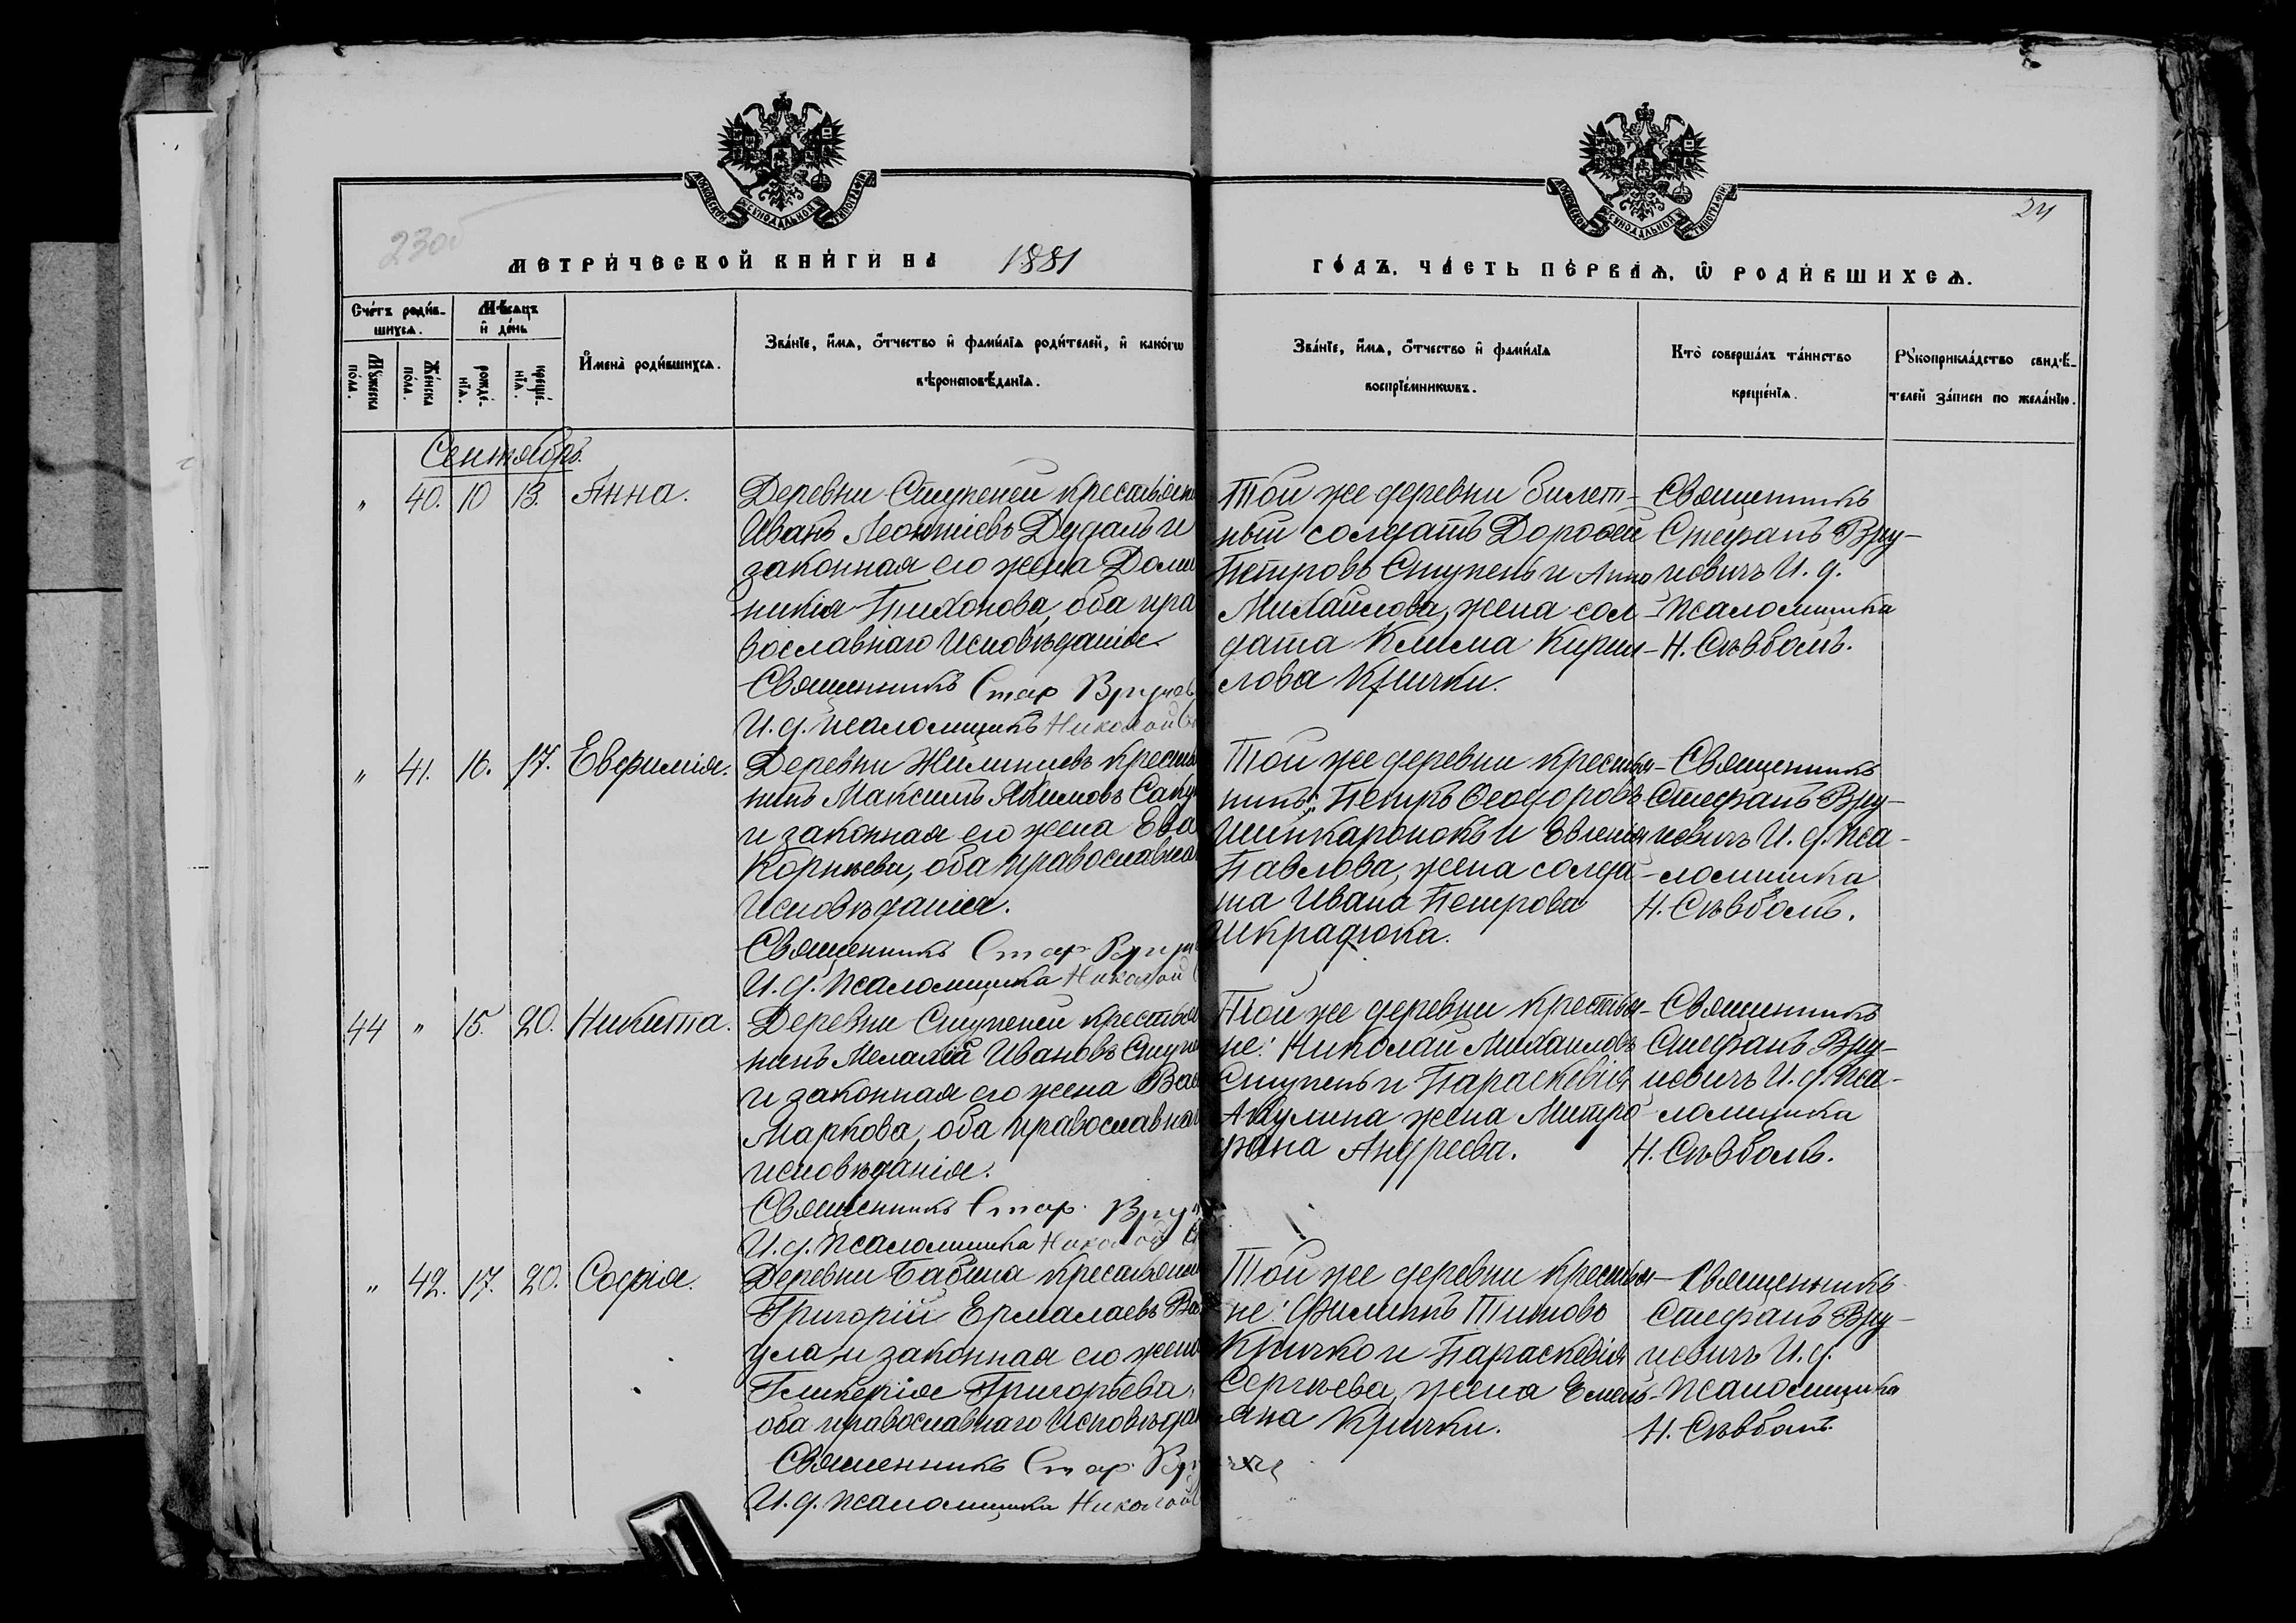 23об
24
МЕТРИЧЕСКОЙ КНИГИ НА 1881
ГОДЪ, ЧАСТЬ ПЕРВАЯ, Ѡ РОДИВШИХСЯ.
Счетъ родив-
шихся.
Мѣсяцъ
и день
Мужеска
пола.
Женска
пола.
рожде-
нія.
креще-
нія.
Имена родившихся.
Званіе, имя, отчество и фамилія родителей, и какогѡ
вѣроисповѣданія.
Званіе, имя, отчество и фамилія
воспріемникѡвъ.
Кто совершалъ таинство
крещенія.
Рукоприкладство свидѣ-
телей записи по желанію.
Сентябрь.
" 40. 10 13. Анна.
Деревни Ступеней крестьяни
Иванъ Леонтіевъ Дудаль и
законная его жена Доми
никія Тихонова, оба пра
вославнаго исповѣданія.
Священникъ Стеф
И. д. псаломщикъ Николай
Той же деревни билет-
ный солдатъ Дороѳей
Петровъ Ступень и Анна
Михайлова, жена сол-
дата Клима Кирил-
лова Крички.
Священникъ
Стефанъ Вру-
цевичъ И. д.
Псаломщика
Н. Съвбомъ.
" 41. 16. 17. Евфимія.
Деревни Жилинцевъ кресть
нинъ Максимъ Якимовъ
и законная его жена Ева
Корнѣева, оба православна
исповѣданія.
Священникъ Стеф
И. д. Псаломщика Николай
Той же деревни крестья-
нинъ: Петръ Ѳеодоровъ
Шинкаронокъ и Евгенія
Павлова, жена солда-
та Ивана Петрова
Шкрадюка.
Священникъ
Стефанъ Вру-
цевичъ И. д. Пса-
ломщика
Н. Съвбомъ.
44 " 15. 20. Никита.
Деревни Ступеней крестья
нинъ Малахій Ивановъ Ступе
и законная его жена Вас
Маркова, оба православна
исповѣданія.
Священникъ Стеф.
И. д. Псаломщика Николай
Той же деревни крестья-
не: Николай Михаиловъ
Ступень и Параскевія
Акулина жена Митро
фана Андреева.
Священникъ
Стефанъ Вру-
цевичъ И. д. Пса-
ломщика
Н. Съвбомъ.
" 42. 17. 20. Софія.
Деревни Бабина крестьянин
Григорій Ермалаевъ Ва
ула и законная его жена
Гликерія Григорьева,
оба православнаго исповѣда
Священникъ Стеф
И. д. псаломщика Николай
Той же деревни крестья-
не: Филиппъ Титовъ
Кричко и Параскевія
Сергѣева, жена Емель-
яна Крички.
Священникъ
Стефанъ Вру-
цевичъ И. д.
Псаломщика
Н. Съвбомъ.